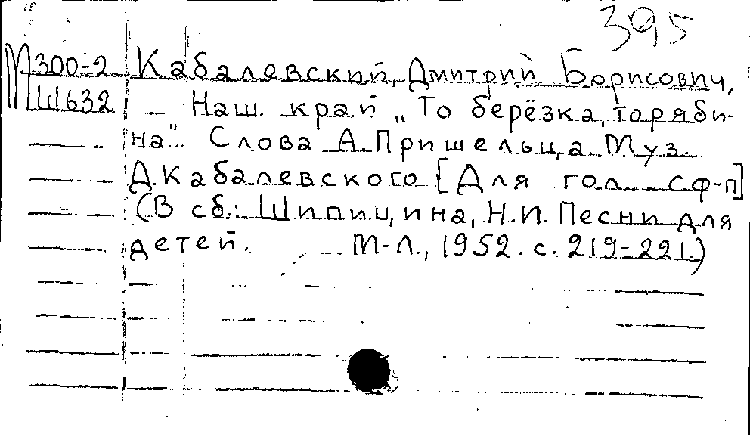 395
М300-2 Кабалевский, Дмитрий Борисович,
Ш632 – Наш край „То берёзка, то ряби-
на". Слова А. Пришельца. Муз.
Д. Кабалевского [Для гол. с ф-п]
(В сб.: Шипицина, Н.И. Песни для
детей. М-Л., 1952. с. 219-221.)